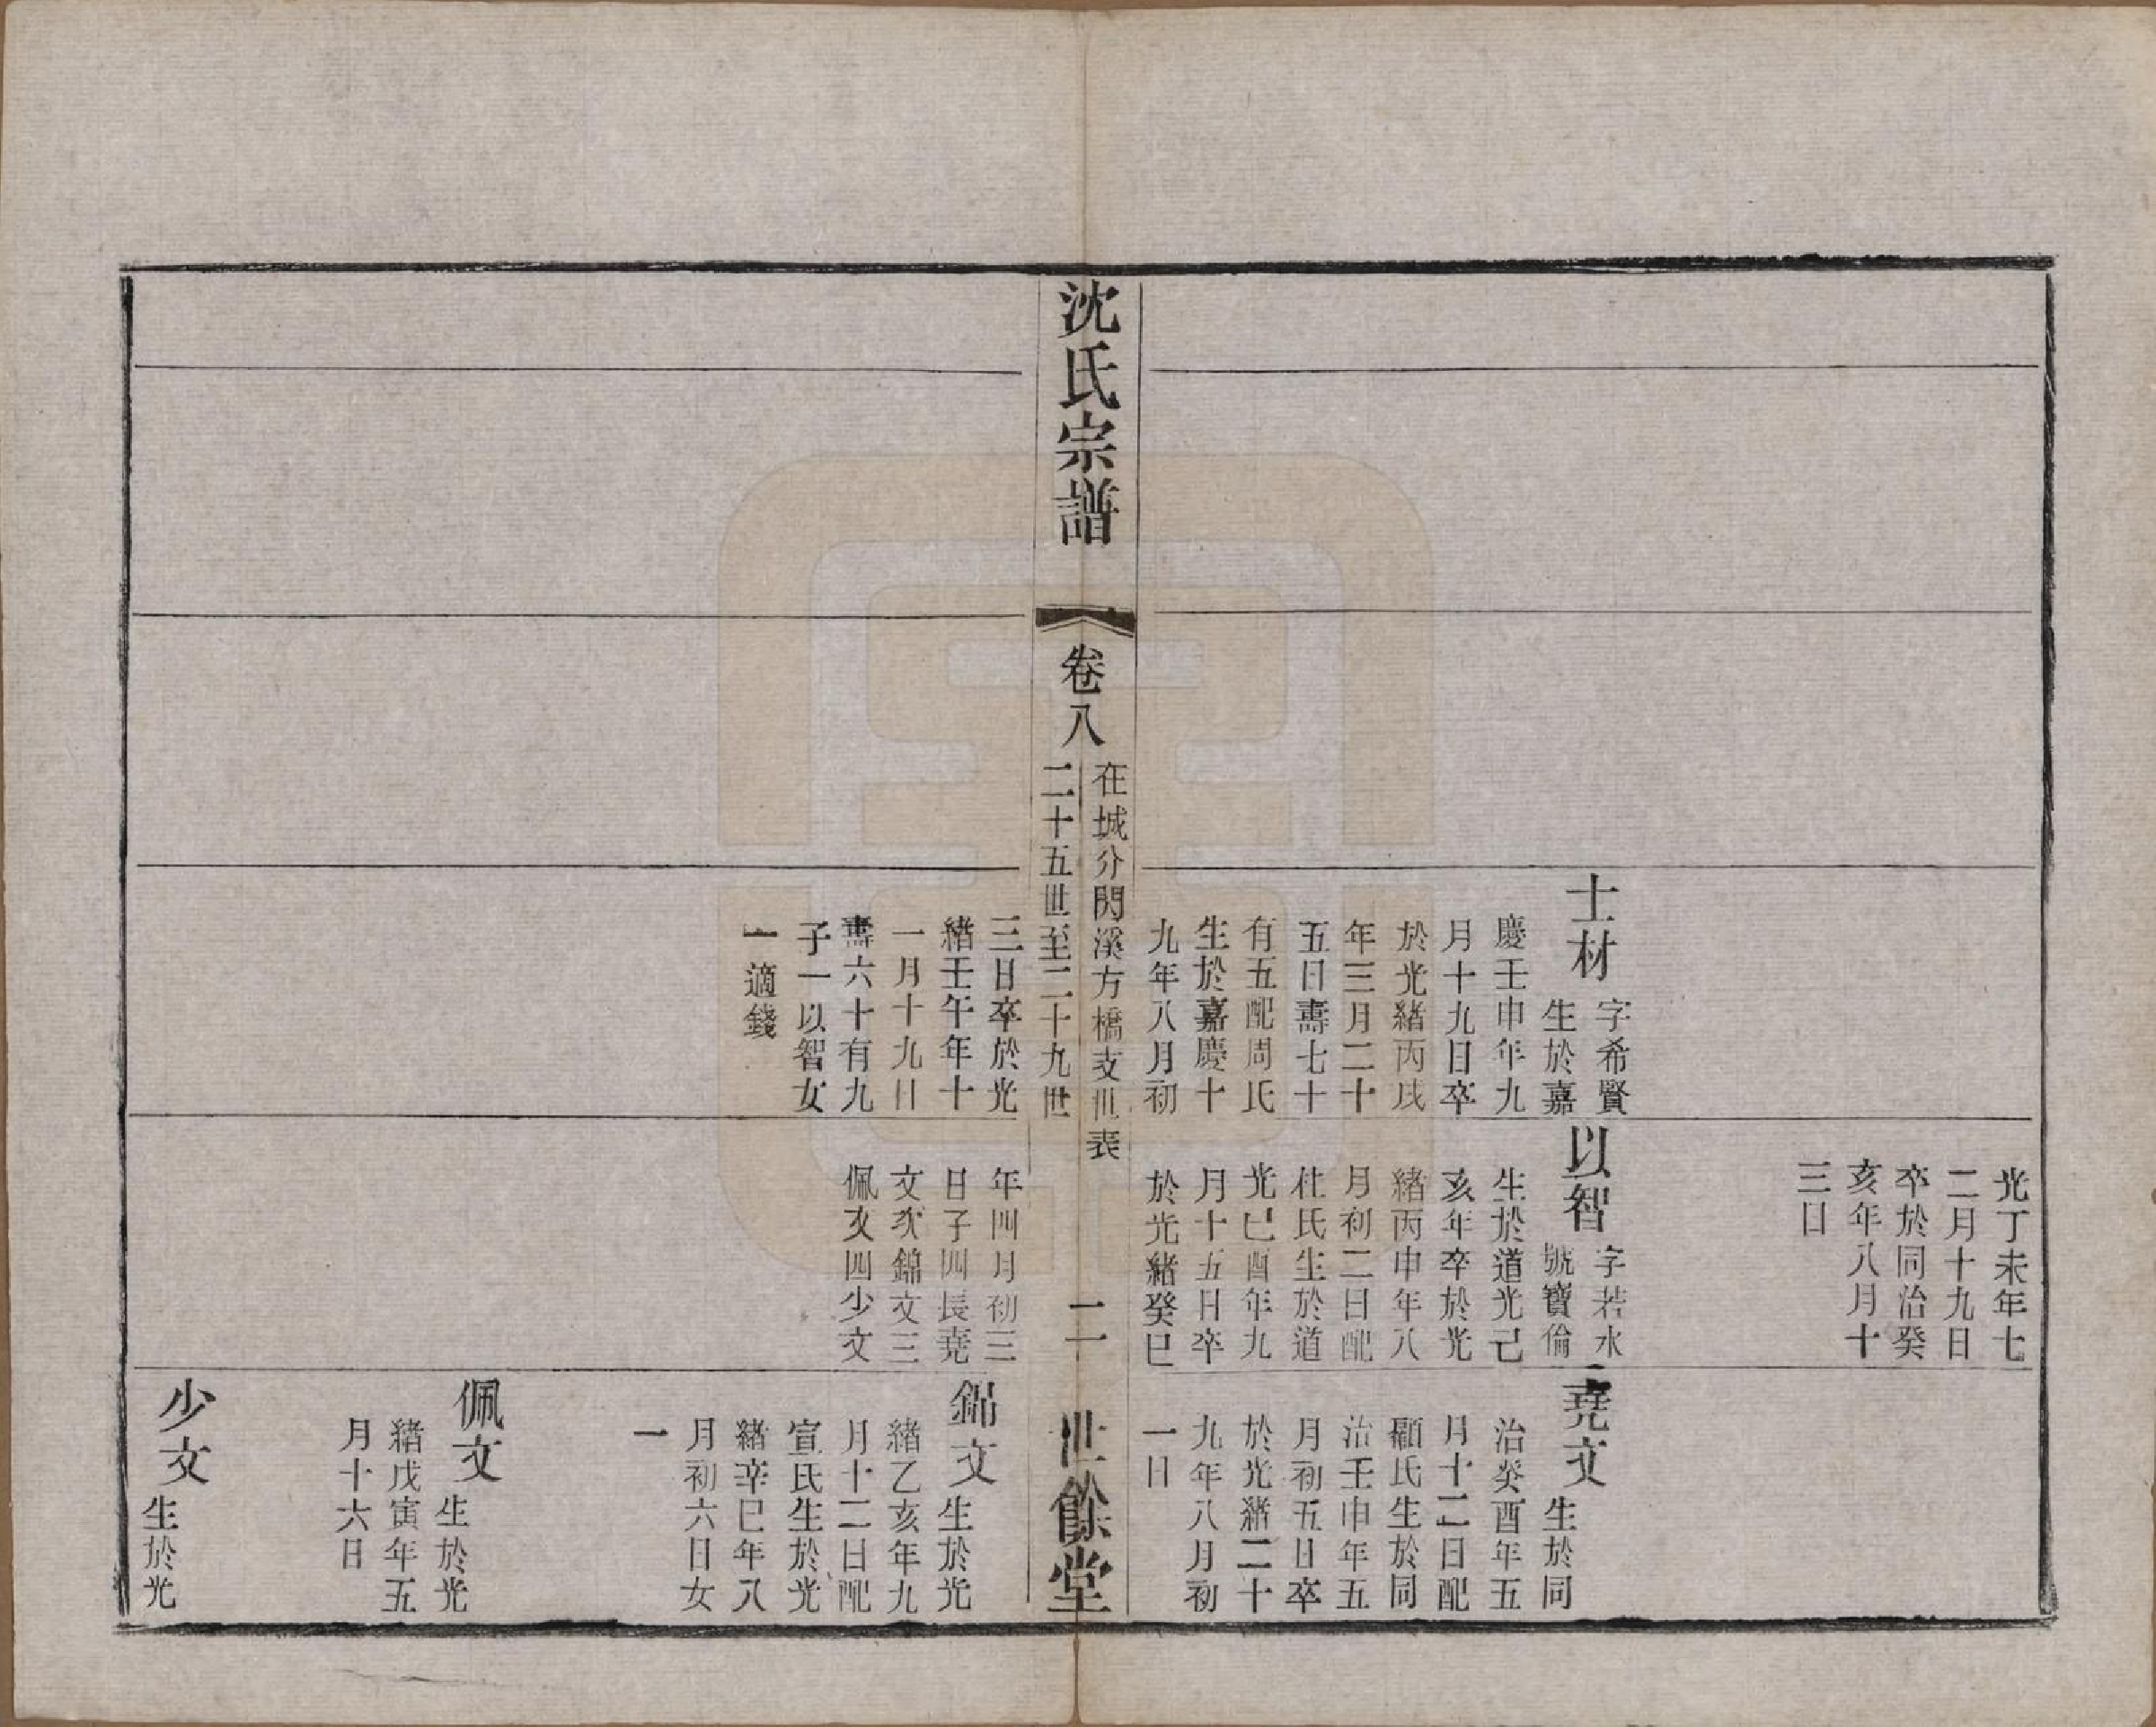 光丁未年七
二月十九日
卒於同治癸
亥年八月十
三日
士材
字希賢
生於嘉
慶壬申年九
月十九日卒
於光緒丙戌
年三月二十
五日壽七十
有五配周氏
生於嘉慶十
九年八月初
以智
字若水
號寶倫
生於道光己
亥年卒於光
緒丙申年八
月初二日配
杜氏生於道
光己酉年九
月十五日卒
於光緒癸巳
堯文
生於同
治癸酉年五
月十二日配
顧氏生於同
治壬申年五
月初五日卒
於光緒二十
九年八月初
一日
沈氏宗譜
卷八
在城分閔溪方橋支世表
二十五世至二十九世
二
世餘堂
三日卒於光
緒壬午年十
一月十九日
壽六十有九
子一以智女
一適錢
年四月初三
日子四長堯
文次錦文三
佩文四少文
錦文
生於光
緒乙亥年九
月十二日配
宣氏生於光
緒辛巳年八
月初六日女
一
佩文
生於光
緒戊寅年五
月十六日
少文
生於光